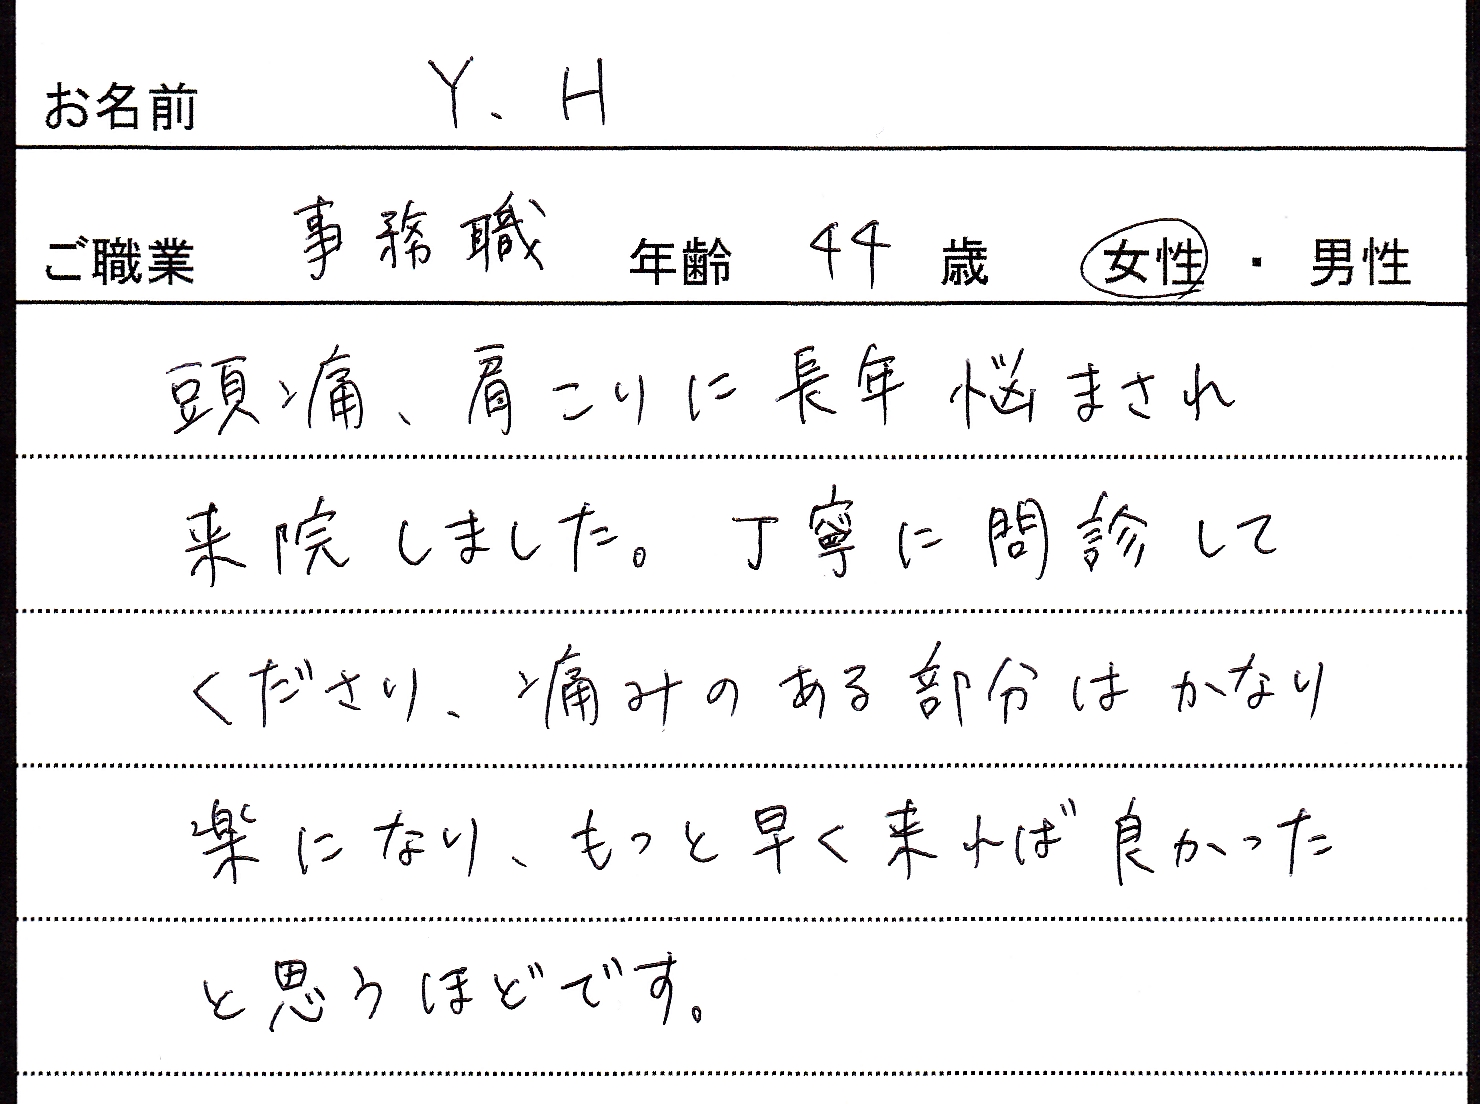 お名前 Y、H
ご職業 事務職 年齢 44 歳 女性 ・ 男性
頭痛、肩こりに長年悩まされ
来院しました。丁寧に問診して
くださり、痛みのある部分はかなり
楽になり、もっと早く来れば良かった
と思うほどです。